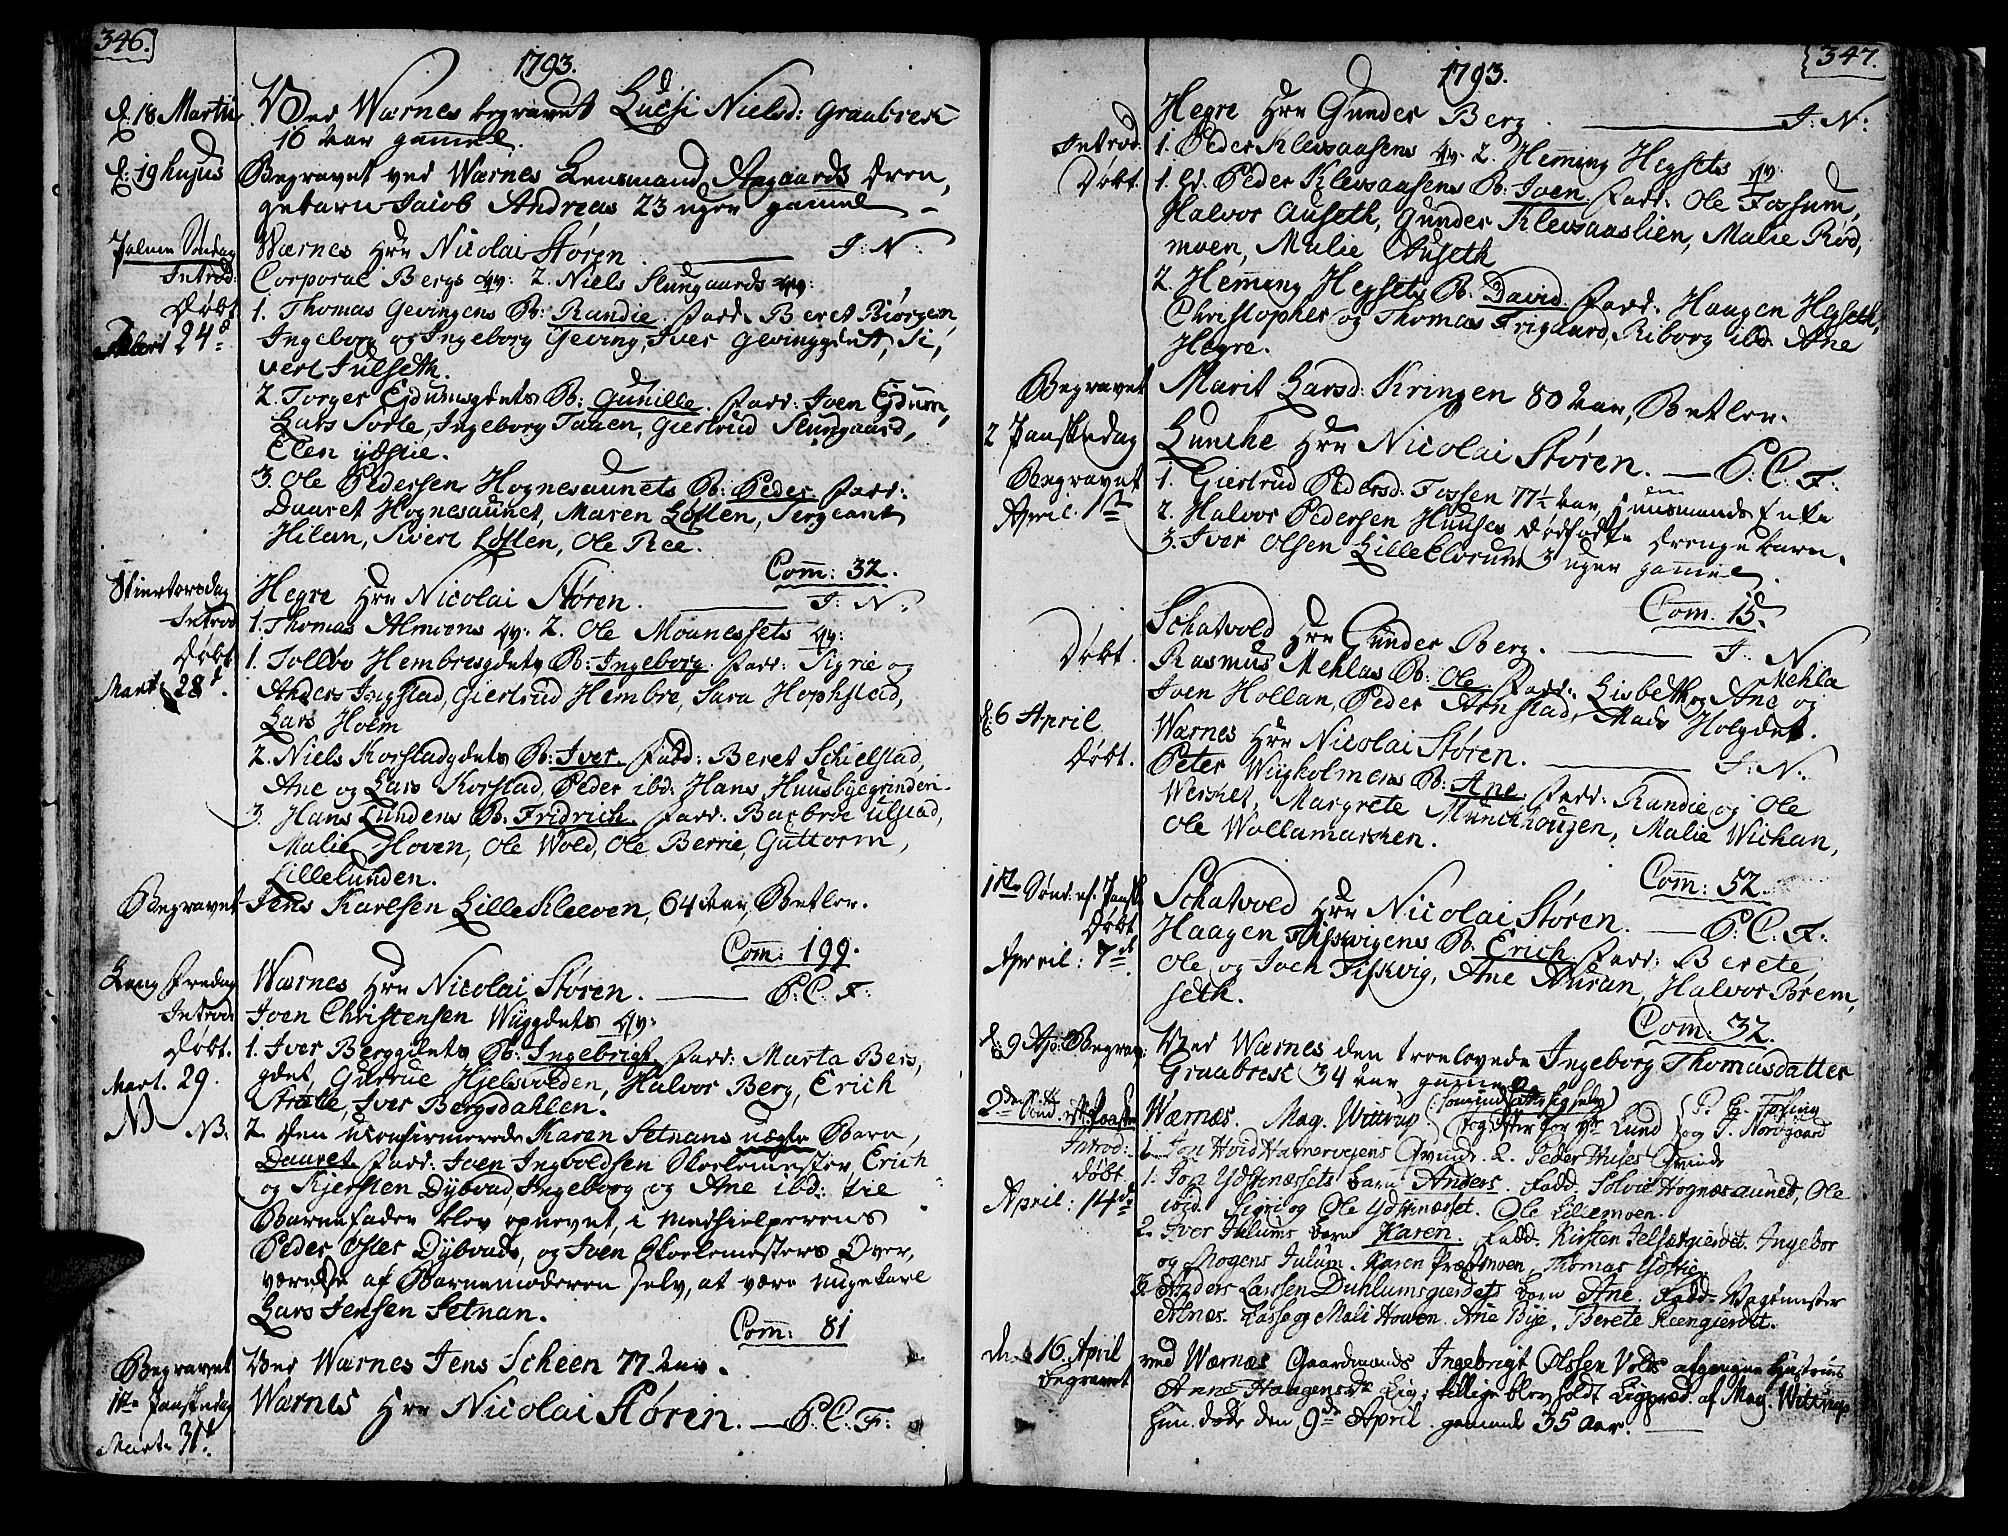 346.
1793.
d. 18 Martii Ved Wærnes begravet Lucsi Nielsd: Graabrek
16 aar gammel.
d. 19 hujus Begravet ved Wærnes Lensmand Aagaards Dren,
gebarn Jacob Andreas 23 uger gammel
Palme Søndag Wærnes Hr. Nicolai Støren. J: N:
Introd: Corporal Bergs qv: 2. Niels Slungaards qv:
Døbt 1. Thomas Gevingens B: Randie. Fadd: Beret Biørgen,
24d Ingeborg og Ingeborg Geving, Iver Gevinggdet, Si,
vert Julseth.
2. Torger Ejdumsgdets B: Gunille. Fadd: Iven Ejdum,
Lars Sorte, Ingeborg Tauen, Giertrud Slungaard,
Elen ydstie.
3. Ole Pedersen Hognesaunets B: Peder. Fadd:
Dauret Hognesaunet, Maren Løften, Sergeant
Hilan, Sivert Løften, Ole Ree.
Com: 32.
Skiertorsdag Hegre Hr. Nicolai Støren. J: N:
Introd 1. Thomas Almoens qv: 2. Ole Mounessets qv:
Døbt 1. Tollöv Hembregdets B: Ingeborg. Fadd: Sigrie og
Mart: 28d. Anders Ingstad, Giertrud Hembre, Sara Hophstad,
Lars Holm
2. Niels Korstadgdets B: Iver. Fadd: Beret Schielstad,
Ane og Lars Korstad, Peder ibd: Hans Huusbyegrinden.
3. Hans Lundens B: Fridrich. Fadd: Barbroe ulstad,
Malie Hoven, Ole Wold, Ole Berrie, Guttorm,
Lillelunden.
Begravet Jens Karlsen Lille Kleeven, 64 aar, Betler.
Com: 199.
Lang Fredag Wærnes Hr. Nicolai Støren. P: C: F:
Introd: Iven Christensen Wiiggdets qv:
Døbt. 1. Iver Berggdets B: Ingebrigt. Fadd: Marta Berg,
Mart. 29. gdet, Gurrue Hjelsvolden, Halvor Berg, Erich
Stratte, Iver Bergsdahlen.
NB. 2. Den uconfirmerede Karen Setnans uægte Barn,
Dauret. Fadd: Iven Ingvoldsen Skolemester, Erich
og Kjersten Dybvad, Ingeborg og Ane ibd: til
Barnefader blev opnevnt, i Medhielperens
Peder Oster Dybvads, og Iven Skolemesters Over,
værelse af Barnemoderen selv, at være unge karl
Lars Jensen Setnan.
Com: 81
Begravet Ved Wærnes Jens Scheen 77 aar.
1te Paaskedag Wærnes Hr. Nicolai Støren. P: C: F:
Mart: 31d.
347.
1793.
Hegre Hr. Gunder Berg. J: N:
Introd. 1. Peder Klevsaasens qv. 2. Heming Hegsets qv:
Døbt. 1. Peder Klevsaasens B: Iven. Fadd: Ole Fossum,
Halvor Auseth, Gunder Klevsaaslien, Malie Rød,
moen, Malie Auseth
2. Heming Hegsets B: David. Fadd: Haagen Hegseth,
Christopher og Thomas Trigaard, Riborg ibd. Ane
Hegre.
Begravet Marit Larsd: Kringen 80 aar, Betler.
2 Paaskedag Luncke Hr. Nicolai Støren. P: C: F:
Begravet 1. Giertrud Pedersd: Fossen 77½ aar, Huusmands Enke
April: 1te 2. Halvor Pedersen Huuses dødfødte Drengebarn.
3. Iver Olsen Lilleklorum 3 uger gammel.
Com: 15.
Schatvold Hr. Gunder Berg. J: N
Døbt. Rasmus Mehlas B: Ole. Fadd: Lisbeth og Ane Mehla
Iven Hollan, Peder Arnstad, Mads Holgdet.
d. 6 April Wærnes Hr. Nicolai Støren. J: N:
Døbt. Peter Wiigholmens B: Ane. Fadd: Randie og Ole
Wersket, Margrete Munchougen, Malie Wichan,
Ole Wollamarchen.
Com: 52.
1ste Sønd. ef. Paaske Schatvold Hr. Nicolai Støren. P: C: F:
Døbt Haagen Fiskvigens B: Erich. Fadd: Berete,
April: 7de Ole og Iven Fiskvig, Ane Auran, Halvor Brem,
seth.
Com: 32.
d: 9 Ap: Begrav: Ved Wærnes den trolovede Ingeborg Thomasdatter
Graabrek 34 aar gammel
2den Sønd. eft. Paaske Wærnæs. Mag. Wittrup
Introd: 1. Jon Hoid Hamervejens Qvinde. 2. Peder Huses Qvinde
Døbt. 1. Jon Ydstinæssets barn Anders. Fadd. Solvie Hognæsaunet, Ole
April: 14de ibid. Sigri og Ole Ydstinæsset. Ole Lillemoen.
2. Iver Julums barn Karen. Fadd. Kirsten Jelsætgierdet. Ingebor
og Mogens Julum. Karen Præstmoen, Thomas Ydstie.
3. Anders Larssen Duhlumsgierdets barn Ane. Fadd. Vagtmester
Alnæs. Lasse og Mali Howen. Ane Bye. Berete Reengierdet.
den 16 April ved Wærnæs Gaardmands Ingebrigt Olssen Volds afgangne Hustrues
begravet Anne Haagensdr Lig; tillige blev holdt Ligpræd. af Mag. Wittrup
hun døde den 9de April. gammel 35 aar.